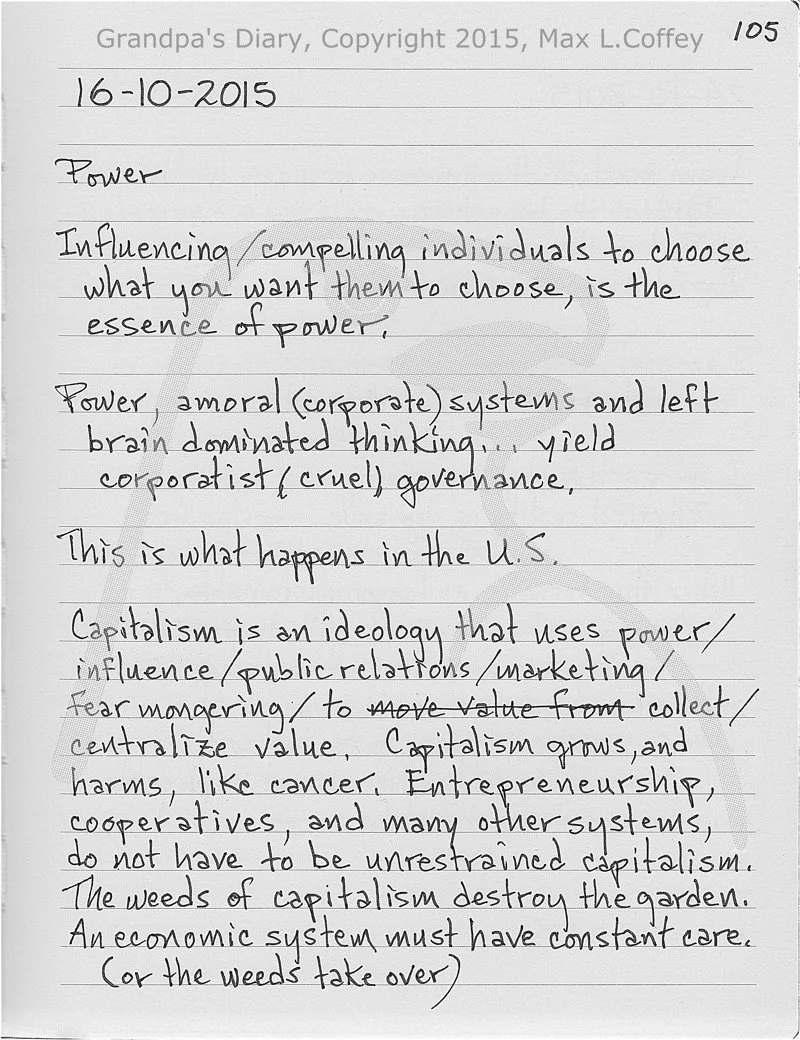 Grandpa's Diary, Copyright 2015, Max L.Coffey
105
16-10-2015
Power
Influencing/compelling individuals to choose
what you want them to choose, is the
essence of power.
Power, amoral (corporate) systems and left
brain dominated thinking... yield
corporatist, (cruel), governance.
This is what happens in the U.S.
Capitalism is an ideology that uses power/
influence/public relations/marketing/
fear mongering/to move value from collect/
centralize value. Capitalism grows, and
harms, like cancer. Entrepreneurship,
cooperatives, and many other systems,
do not have to be unrestrained capitalism.
The weeds of capitalism destroy the garden.
An economic system must have constant care.
(or the weeds take over)